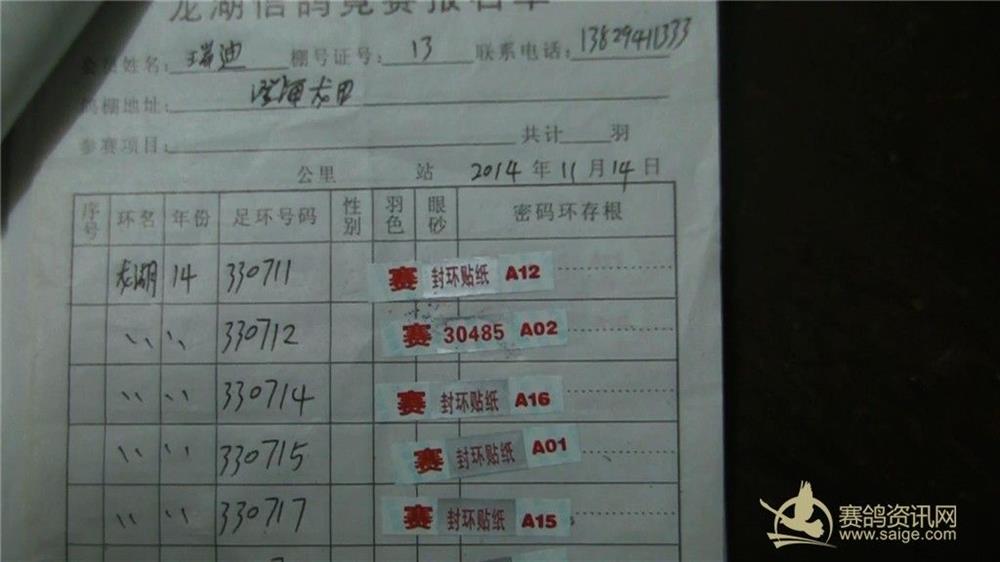 龙湖信鸽竞赛报名单
会员姓名: 瑞迪 棚号证号: 13 联系电话: 13829411333
鸽棚地址: 澄海龙田
参赛项目: 共计 羽
公里 站 2014 年 11 月 14 日
序号 环名 年份 足环号码 性别 羽色 眼砂 密码环存根
龙湖 14 330711 赛 封环贴纸 A12
〃 〃 330712 赛 30485 A02
〃 〃 330714 赛 封环贴纸 A16
〃 〃 330715 赛 封环贴纸 A01
〃 〃 330717 赛 封环贴纸 A15
赛鸽资讯网
www.saige.com